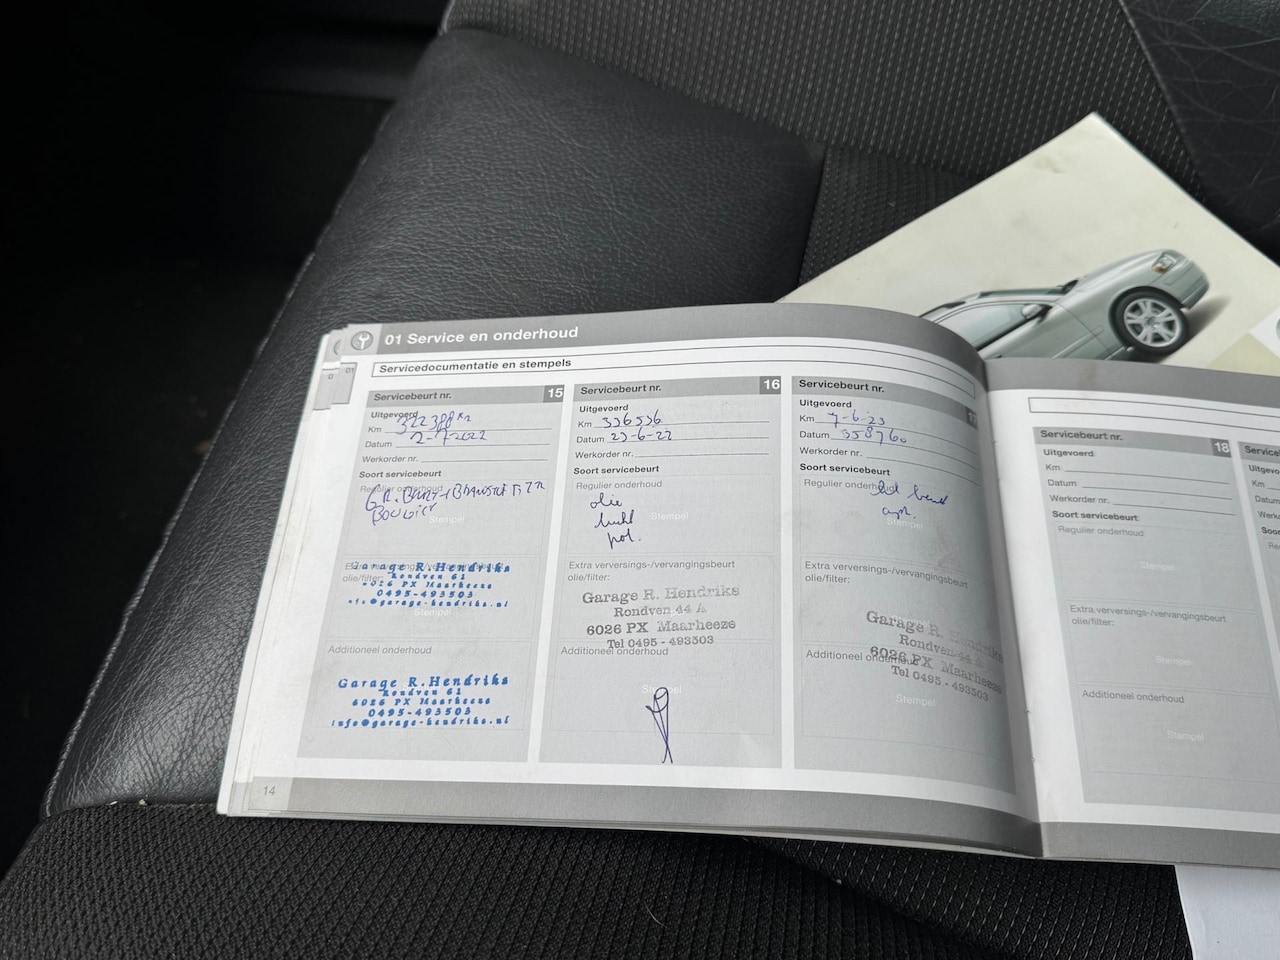 01 Service en onderhoud
0
01
Servicedocumentatie en stempels
Servicebeurt nr. 15
Uitgevoerd
Km
Datum 2-7-2022
Werkorder nr.
Soort servicebeurt
Regulier onderhoud
GR. BEURT
Stempel
Extra verversings-/vervangingsbeurt
olie/filter:
Garage R. Hendriks
Rondven 61
6026 PX Maarheeze
0495-493503
info@garage-hendriks.nl
Stempel
Additioneel onderhoud
Garage R. Hendriks
Rondven 61
6026 PX Maarheeze
0495-493503
info@garage-hendriks.nl
14
Servicebeurt nr. 16
Uitgevoerd
Km 336536
Datum 23-6-22
Werkorder nr.
Soort servicebeurt
Regulier onderhoud
olie
lucht
pol.
Stempel
Extra verversings-/vervangingsbeurt
olie/filter:
Garage R. Hendriks
Rondven 44 A
6026 PX Maarheeze
Tel 0495 - 493503
Additioneel onderhoud
Stempel
Servicebeurt nr. 17
Uitgevoerd
Km 7-6-23
Datum 358760
Werkorder nr.
Soort servicebeurt
Regulier onderhoud
Stempel
Extra verversings-/vervangingsbeurt
olie/filter:
Garage R. Hendriks
Rondven 44 A
6026 PX Maarheeze
Tel 0495 - 493503
Additioneel onderhoud
Stempel
Servicebeurt nr. 18
Uitgevoerd
Km
Datum
Werkorder nr.
Soort servicebeurt
Regulier onderhoud
Stempel
Extra verversings-/vervangingsbeurt
olie/filter:
Stempel
Additioneel onderhoud
Stempel